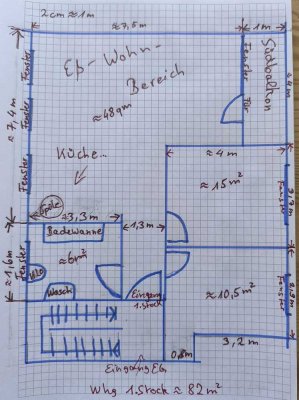 2cm ≈ 1m
≈ 7,5m
1m
Fenster
Eß-Wohn-
Bereich
≈ 48qm
Fenster
Tür
Südbalkon
≈ 4m
≈ 7,4m
Fenster
Fenster
Küche...
≈ 4m
≈ 15m²
3,3m
Fenster
Spüle
≈ 3,3m
1,3m
Badewanne
≈ 6m²
Fenster
Wc
≈ 1,6m
Wasch
Eingang
1.Stock
≈ 10,5m²
Fenster
3,2m
0,8m
Eingang EG
Whg 1.Stock ≈ 82m²